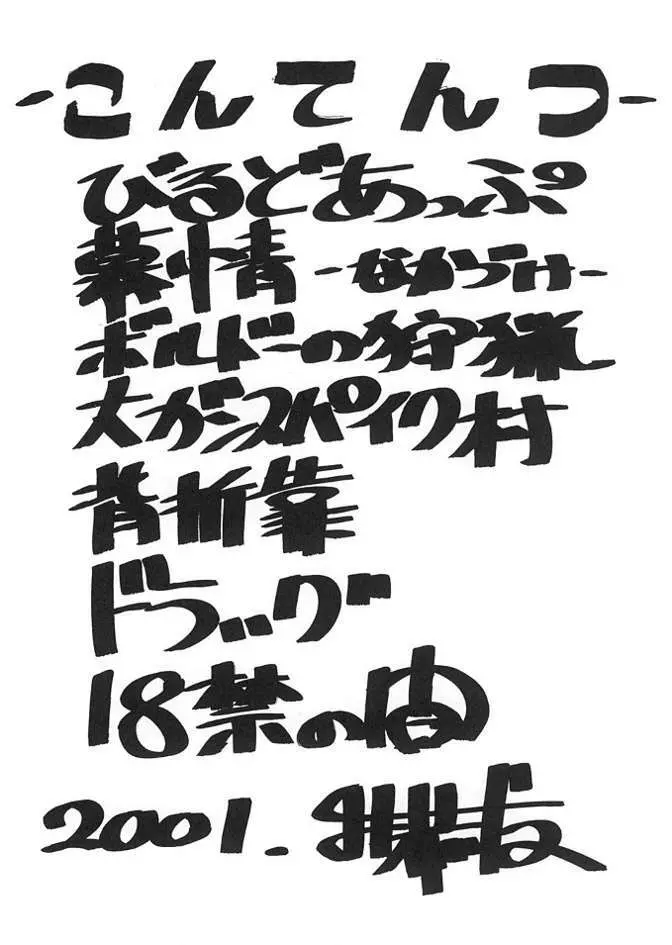 -こんてんつ-
びるどあっぷ
慕情 -なかづけ-
ボルドーの狩猟
大ガンスパイク村
背折靠
ドラッグ
18禁の由
2001.